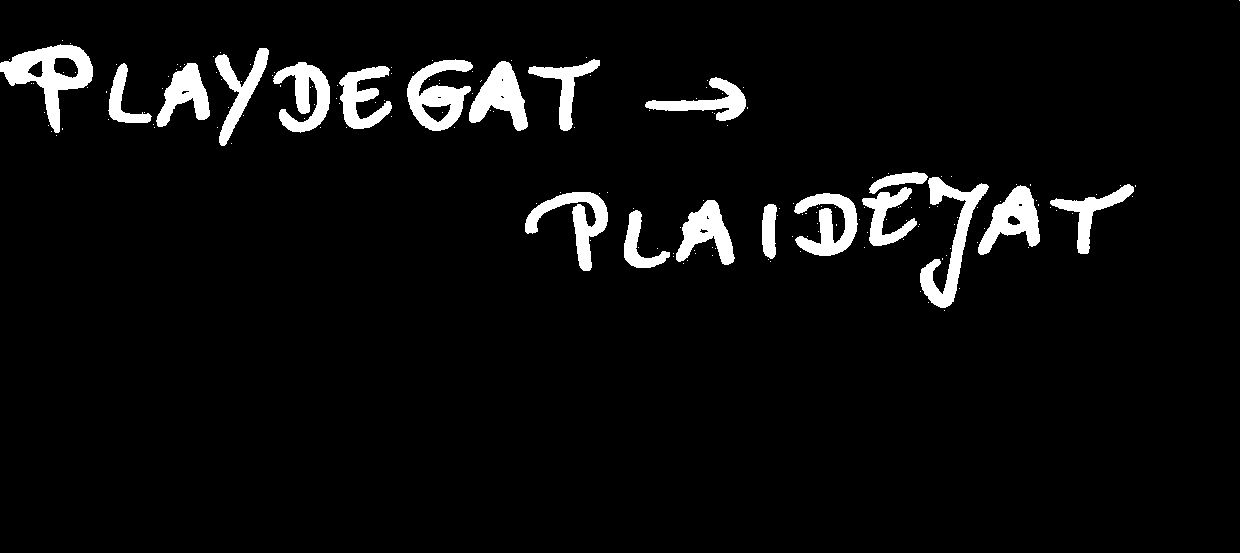 PLAYDEGAT →
PLAIDEJAT